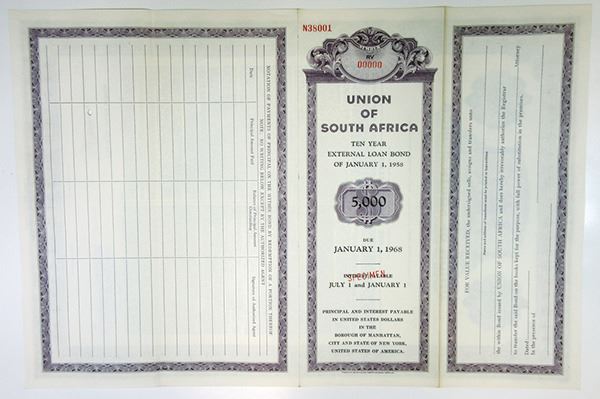 N38001
RV
00000
UNION
OF
SOUTH AFRICA
TEN YEAR
EXTERNAL LOAN BOND
OF JANUARY 1, 1958
5,000
DUE
JANUARY 1, 1968
INTEREST PAYABLE
SPECIMEN
JULY 1 and JANUARY 1
PRINCIPAL AND INTEREST PAYABLE
IN UNITED STATES DOLLARS
IN THE
BOROUGH OF MANHATTAN,
CITY AND STATE OF NEW YORK,
UNITED STATES OF AMERICA.
NOTATION OF PAYMENTS OF PRINCIPAL ON THE WITHIN BOND BY REDEMPTION OF A PORTION THEREOF
NOTE: NO WRITING BELOW EXCEPT BY THE AUTHORIZED AGENT
Date
Principal Amount Paid
Balance of Principal Amount
Outstanding
Signature of Authorized Agent
FOR VALUE RECEIVED, the undersigned sells, assigns and transfers unto
the within Bond issued by UNION OF SOUTH AFRICA and does hereby irrevocably authorize the Registrar
Attorney
to transfer the said Bond on the books kept for the purpose, with full power of substitution in the premises.
Dated
In the presence of